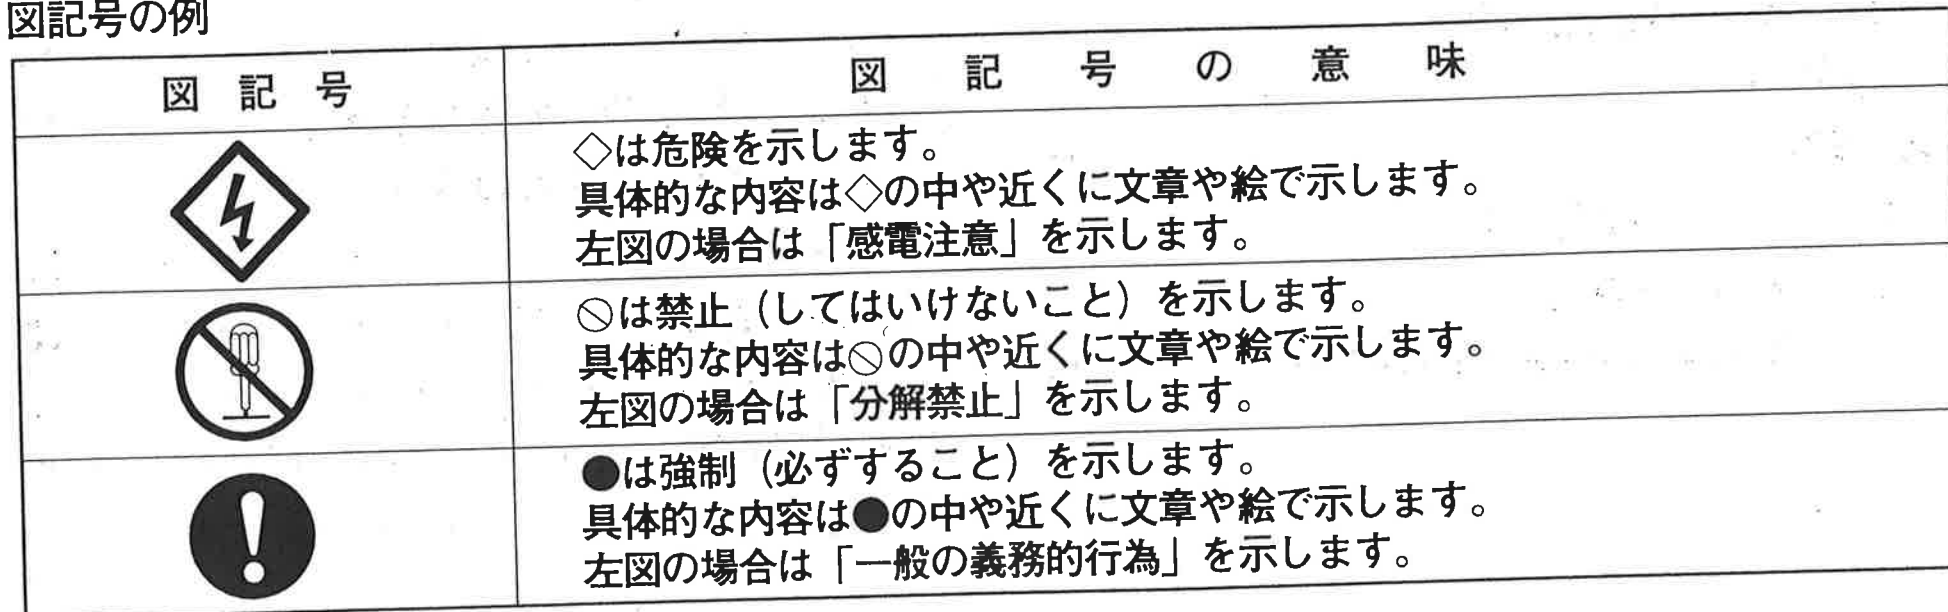 図記号の例
図記号 図記号の意味
◇は危険を示します。
具体的な内容は◇の中や近くに文章や絵で示します。
左図の場合は「感電注意」を示します。
⃠は禁止（してはいけないこと）を示します。
具体的な内容は⃠の中や近くに文章や絵で示します。
左図の場合は「分解禁止」を示します。
●は強制（必ずすること）を示します。
具体的な内容は●の中や近くに文章や絵で示します。
左図の場合は「一般の義務的行為」を示します。